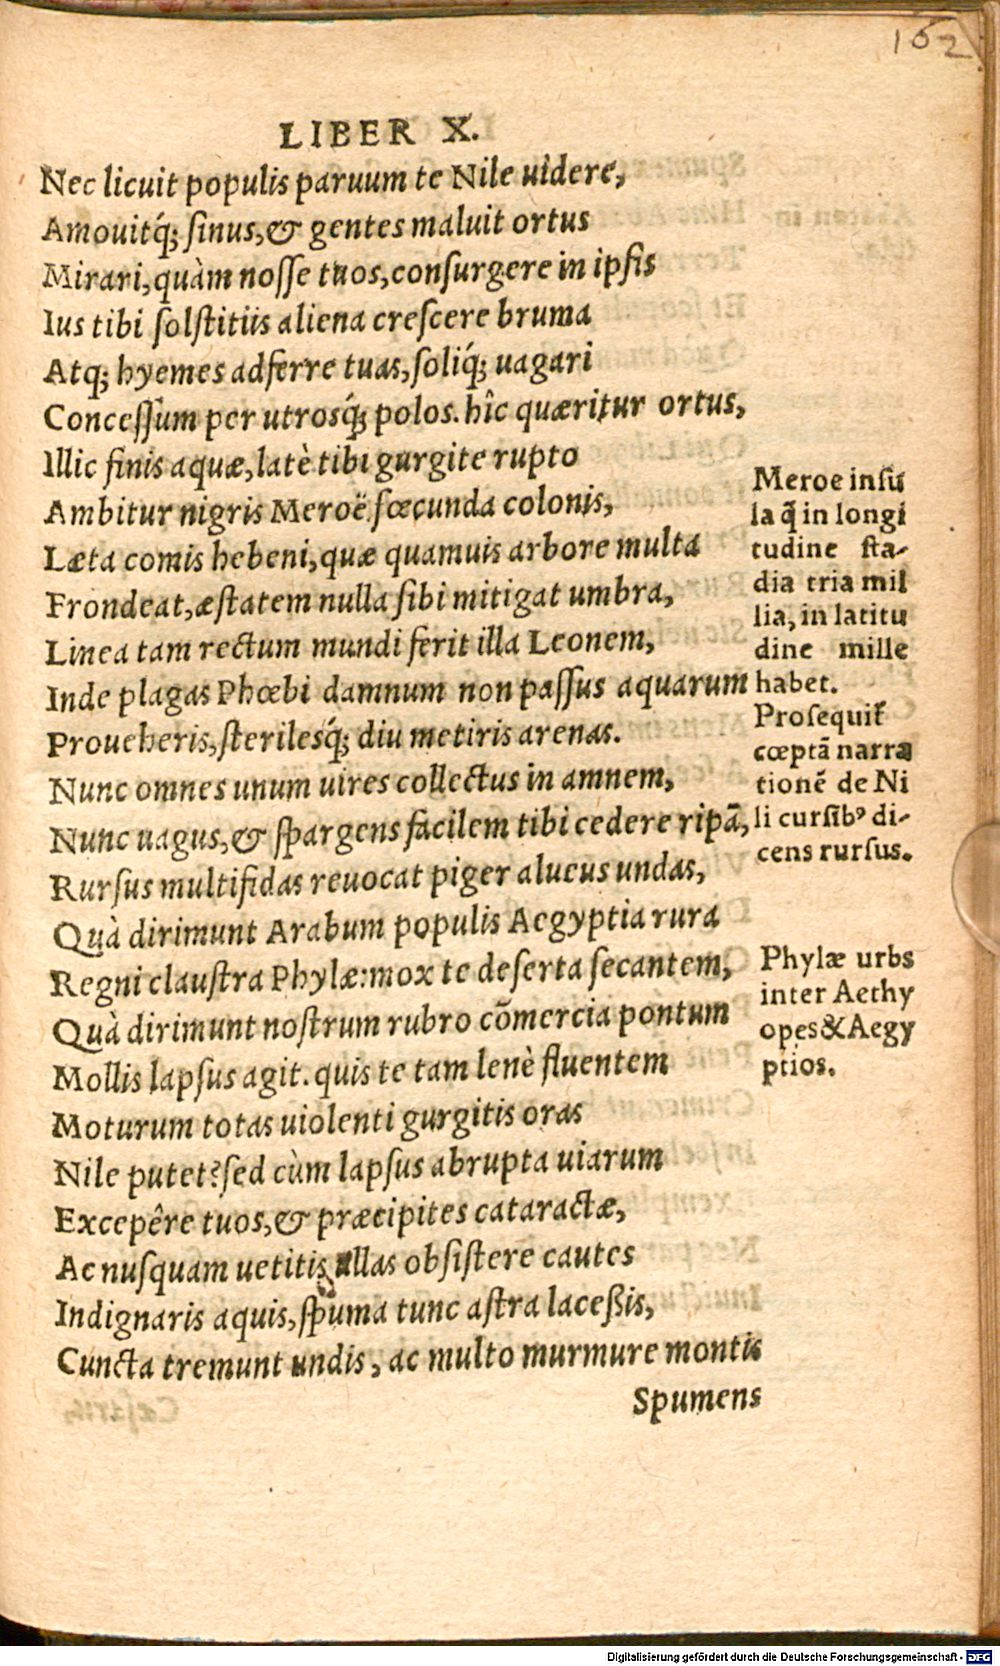 162
LIBER X.
Nec licuit populis paruum te Nile uidere,
Amouitq́; sinus, & gentes maluit ortus
Mirari, quàm nosse tuos, consurgere in ipsis
Ius tibi solstitiis aliena crescere bruma
Atq; hyemes adferre tuas, soliq́; uagari
Concessum per utrosq́; polos. hîc quæritur ortus,
Illic finis aquæ, latè tibi gurgite rupto
Ambitur nigris Meroë fœcunda colonis,
Læta comis hebeni, quæ quamuis arbore multa
Frondeat, æstatem nulla sibi mitigat umbra,
Linea tam rectum mundi ferit illa Leonem,
Inde plagas Phœbi damnum non passus aquarum
Proueheris, sterilesq́; diu metiris arenas.
Nunc omnes unum uires collectus in amnem,
Nunc uagus, & spargens facilem tibi cedere ripã,
Rursus multifidas reuocat piger alueus undas,
Quà dirimunt Arabum populis Aegyptia rura
Regni claustra Phylæ: mox te deserta secantem,
Quà dirimunt nostrum rubro cõmercia pontum
Mollis lapsus agit. quis te tam lenè fluentem
Moturum totas uiolenti gurgitis oras
Nile putet? sed cùm lapsus abrupta uiarum
Excepêre tuos, & præcipites cataractæ,
Ac nusquam uetitis ullas obsistere cautes
Indignaris aquis, spuma tunc astra laceßis,
Cuncta tremunt undis, ac multo murmure montis
Spumens
Meroe insu
la q̃ in longi
tudine sta-
dia tria mil
lia, in latitu
dine mille
habet.
Prosequit᷑
cœptã narra
tionẽ de Ni
li cursibꝰ di-
cens rursus.
Phylæ urbs
inter Aethy
opes & Aegy
ptios.
Digitalisierung gefördert durch die Deutsche Forschungsgemeinschaft - DFG